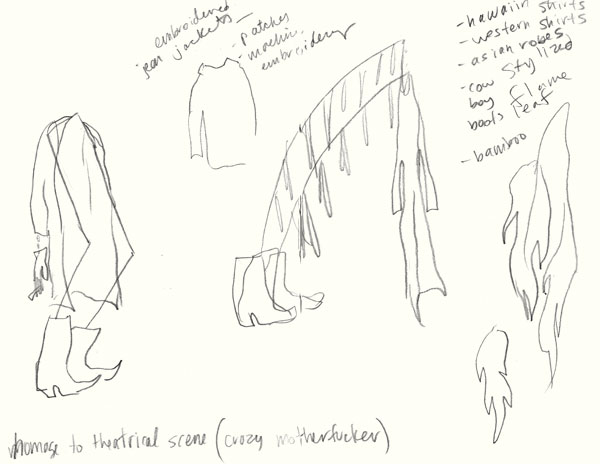 embroidered
jean jackets
- patches
- machine
embroidery
- hawaiin shirts
- western shirts
- asian robes
- cow
boy
boots
stylized
flame
leaf
- bamboo
homage to theatrical scene (crazy motherfucker)